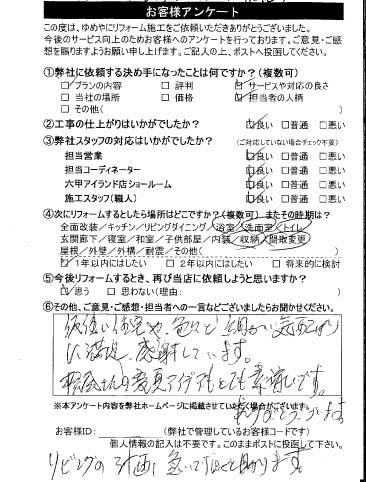 お客様アンケート
この度は、ゆめやにリフォーム施工をご依頼いただきありがとうございました。
今後のサービス向上のためお客様へのアンケートを行っております。ご意見・ご感
想を賜りますようお願い申し上げます。ご記入の上、ポストへ投函してください。
①弊社に依頼する決め手になったことは何ですか？（複数可）
□プランの内容 □評判 ☑サービスや対応の良さ
□当社の場所 □価格 ☑担当者の人柄
□その他( )
②工事の仕上がりはいかがでしたか？ ☑良い □普通 □悪い
③弊社スタッフの対応はいかがでしたか？ (ご対応していない場合チェック不要)
担当営業 ☑良い □普通 □悪い
担当コーディネーター ☑良い □普通 □悪い
六甲アイランド店ショールーム ☑良い □普通 □悪い
施工スタッフ(職人) ☑良い □普通 □悪い
④次にリフォームするとしたら場所はどこですか？（複数可）またその時期は？
全面改装／キッチン／リビングダイニング／浴室／洗面室／トイレ
玄関廊下／寝室／和室／子供部屋／内装／収納／間取変更
屋根／外壁／外構／耐震／その他( )
☑1年以内にはしたい □2年以内にはしたい □将来的に検討
⑤今後リフォームするとき、再び当店に依頼しようと思いますか？
☑思う □思わない（理由: )
⑥その他、ご意見・ご感想・担当者への一言などございましたらお聞かせください。
に満足、感謝しています。
さんの意見アイデアもとても素晴しいです。
ありがとうございます
※本アンケート内容を弊社ホームページに掲載させていただく場合がございます。
お客様ID: (弊社で管理しているお客様コードです)
個人情報の記入は不要です。このままポストに投函して下さい。
リビングの計画